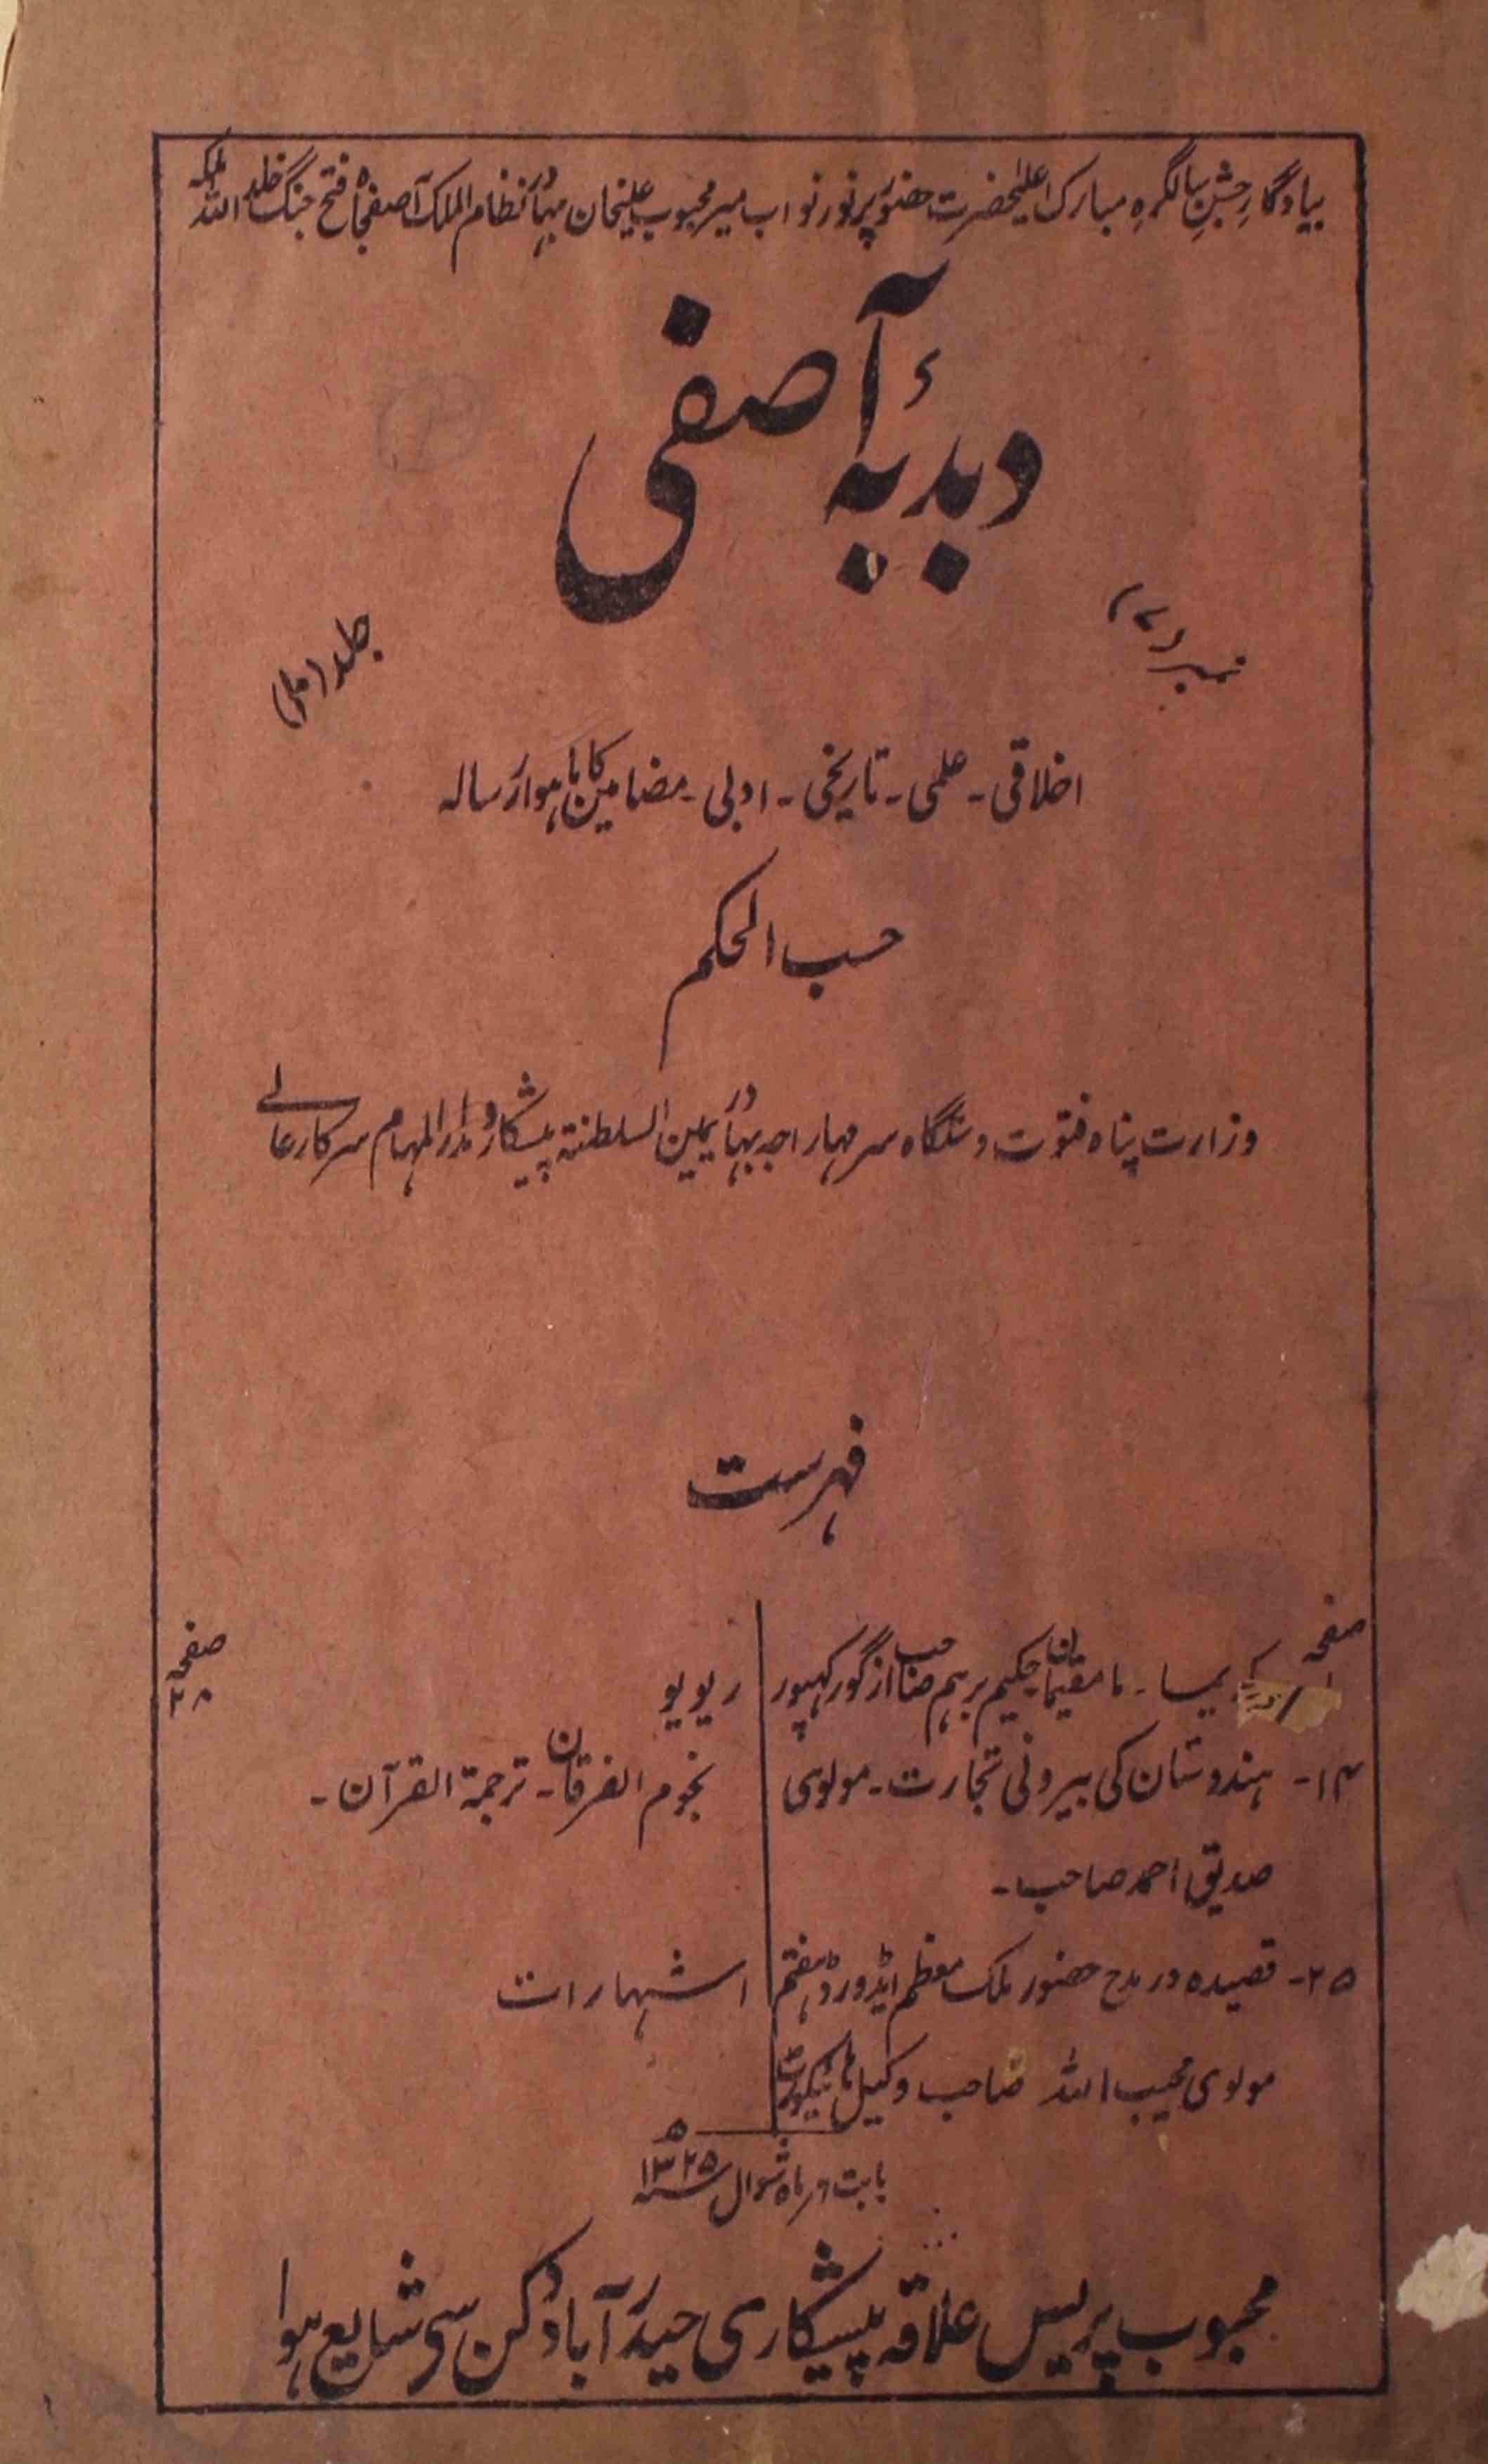 بیادگار جشن سالگرہ مبارک اعلیحضرت حضور پرنور نواب میر محبوب علیخان بہادر نظام الملک آصفجاہ فتح جنگ خلد اللہ ملکہ
دبدبۂ آصفی
نمبر (۷)
جلد (۱۰)
اخلاقی ۔ علمی ۔ تاریخی ۔ ادبی ۔ مضامین کا ماہوار رسالہ
حسب الحکم
وزارت پناہ فتوت دستگاہ سر مہاراجہ بہادر یمین السلطنۃ پیشکار و مدارالمہام سرکار عالے
فہرست
صفحہ
یسا ۔ مامقیمان حکیم برہم صاحب از گورکھپور
۱۴ ۔ ہندوستان کی بیرونی تجارت ۔ مولوی
صدیق احمد صاحب ۔
۲۵ ۔ قصیدہ در مدح حضور ملک معظم ایڈورڈ ہفتم
مولوی محیب اللہ صاحب وکیل ہائیکورٹ
صفحہ
۲۸
ریویو
نجوم الفرقان ۔ ترجمۃ القرآن ۔
اشتہارات
بابت ماہ شوال ۱۳۲۵ھ
محبوب پریس علاقہ پیشکاری حیدرآباد دکن سی شایع ہوا